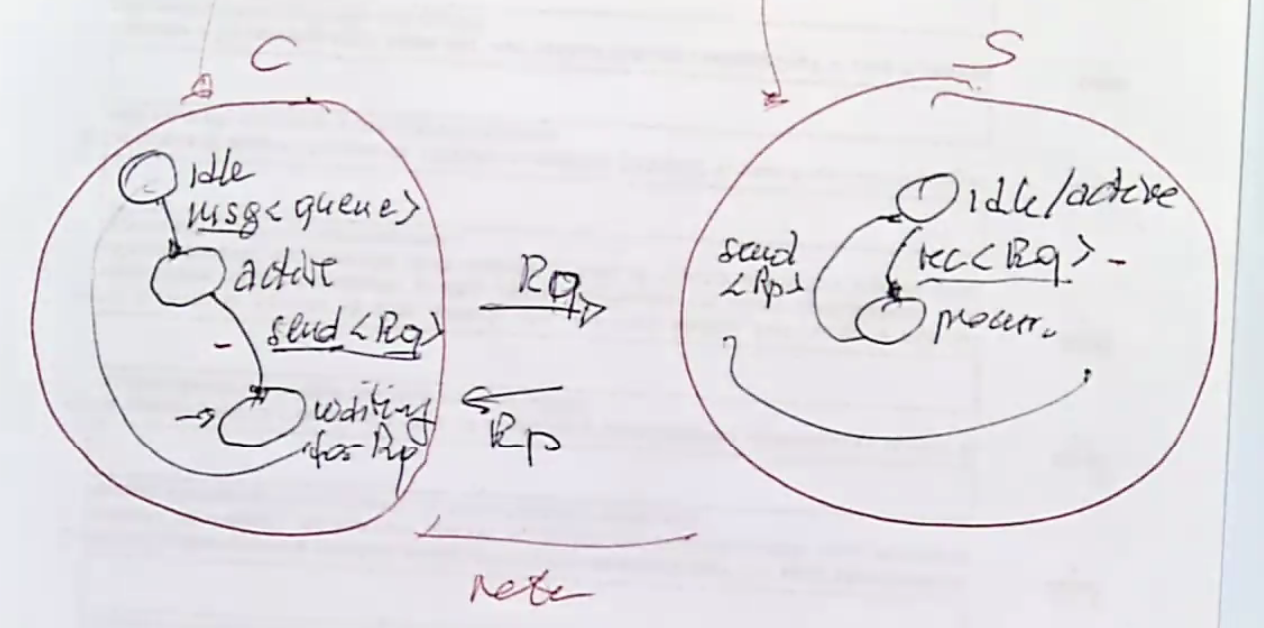 C
idle
msg<queue>
active
send<Rq>
waiting
for Rp
Rq
Rp
S
idle/active
rec<Rq>
send
<Rp>